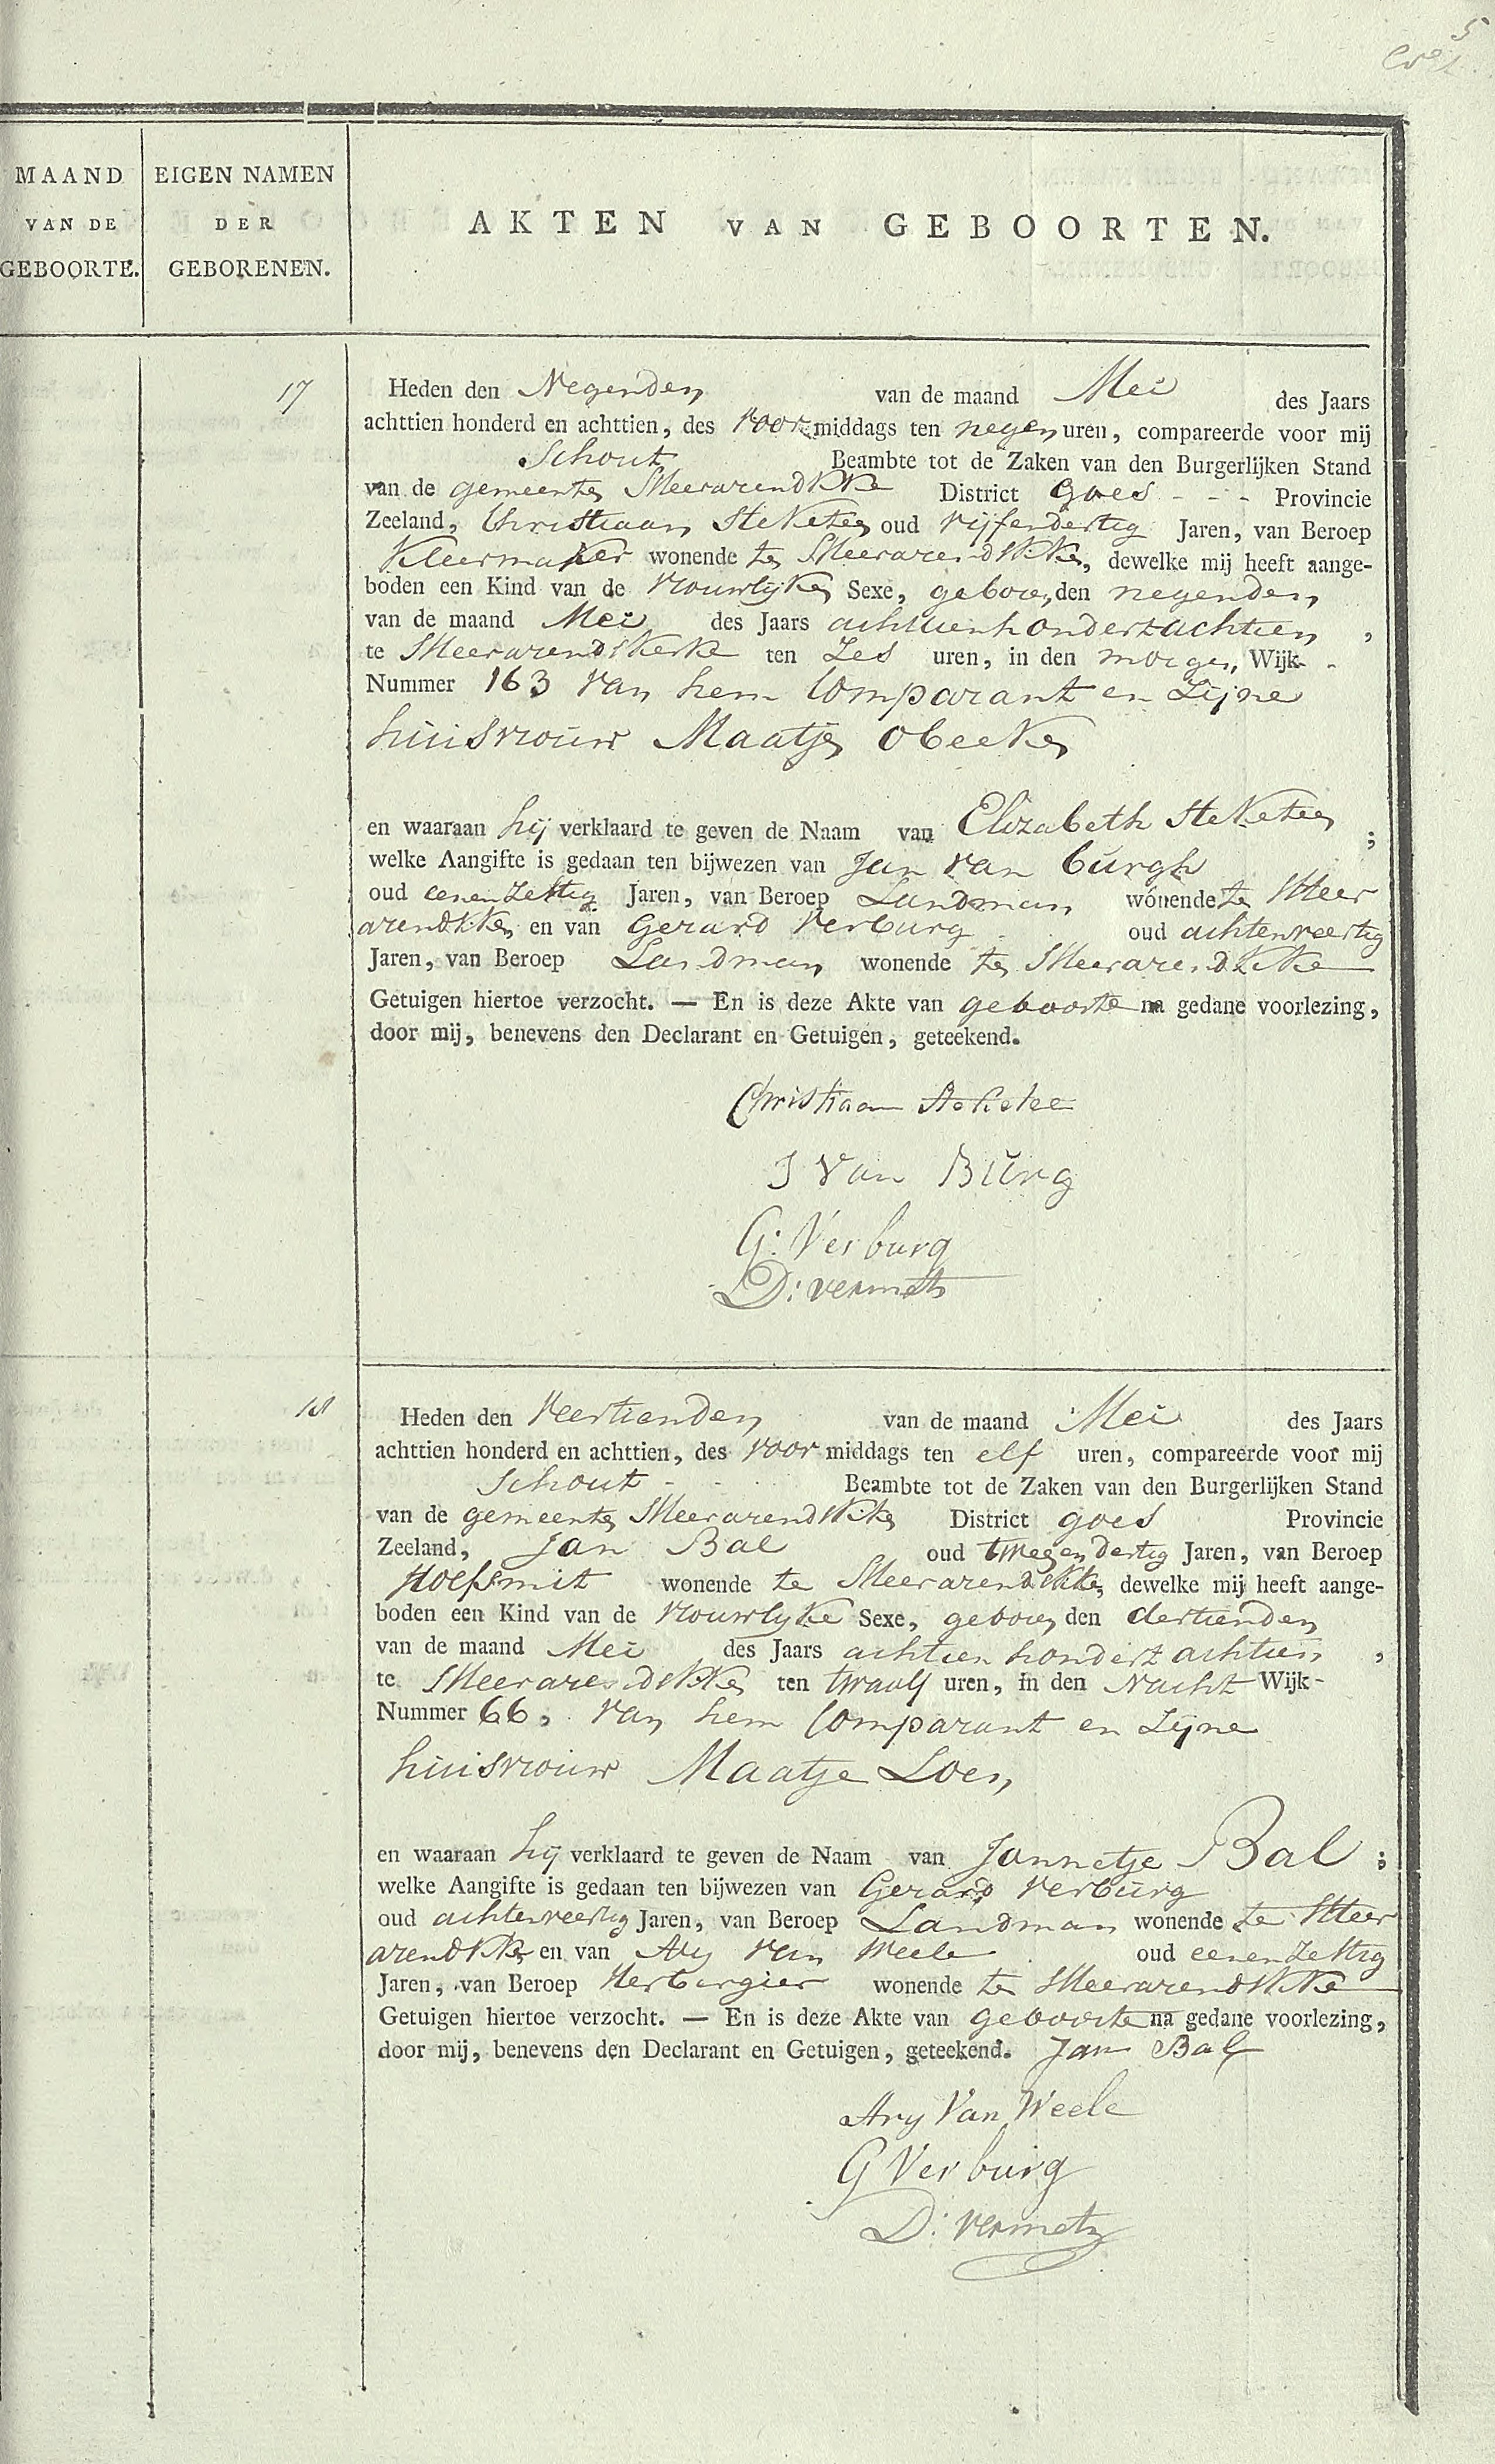 5
MAAND
VAN DE
GEBOORTE.
EIGEN NAMEN
DER
GEBORENEN.
AKTEN VAN GEBOORTEN.
17
Heden den Negenden van de maand Mei des Jaars
achttien honderd en achttien, des voormiddags ten negen uren, compareerde voor mij
Schout Beambte tot de Zaken van den Burgerlijken Stand
van de gemeente SHeerarendskke District Goes - - - Provincie
Zeeland, Christiaan SteKetee oud vijfendertig Jaren, van Beroep
Kleermaker wonende te SHeerarendskke, dewelke mij heeft aange-
boden een Kind van de vrouwlijke Sexe, geboren den negenden
van de maand Mei des Jaars achttienhondertachtien,
te SHeerarendskerke ten Zes uren, in den morgen, Wijk-
Nummer 163 van hem Comparant en Zijne
huisvrouw Maatje ObeeKe
en waaraan hij verklaard te geven de Naam van Elizabeth SteKetee;
welke Aangifte is gedaan ten bijwezen van Jan van burgh
oud eenenzestig Jaren, van Beroep Landman wonende te SHeer
arendskke en van Gerard Verburg oud achtenveertig
Jaren, van Beroep Landman wonende te SHeerarendskke
Getuigen hiertoe verzocht. — En is deze Akte van geboorte na gedane voorlezing,
door mij, benevens den Declarant en Getuigen, geteekend.
Christiaan Steketee
J Van Burg
G: Verburg
D: vermet
18
Heden den veertienden van de maand Mei des Jaars
achttien honderd en achttien, des voor middags ten elf uren, compareerde voor mij
Schout - - Beambte tot de Zaken van den Burgerlijken Stand
van de gemeente SHeerarendskke District goes Provincie
Zeeland, Jan Bal oud tweeendertig Jaren, van Beroep
Hoefsmit wonende te SHeerarendskke, dewelke mij heeft aange-
boden een Kind van de vrouwlyke Sexe, geboren den dertienden
van de maand Mei des Jaars achtien hondert achtien,
te SHeerarendskke ten twaalf uren, in den Nacht Wijk-
Nummer 66, van hem Comparant en Zijne
huisvrouw Maatje Loen,
en waaraan hij verklaard te geven de Naam van Jannetje Bal;
welke Aangifte is gedaan ten bijwezen van Gerard verburg
oud achtenveertig Jaren, van Beroep Landman wonende te SHeer
arendskke en van Ary van Weele oud eenenzestig
Jaren, van Beroep Herbergier wonende te SHeerarendskke
Getuigen hiertoe verzocht. — En is deze Akte van geboorte na gedane voorlezing,
door mij, benevens den Declarant en Getuigen, geteekend. Jan Bal
Ary Van Weele
G Verburg
D: vermet